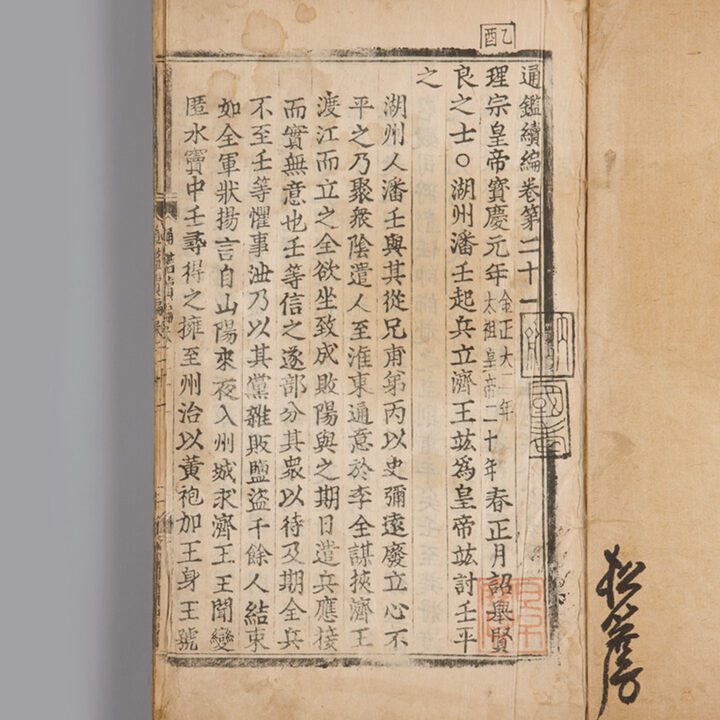 乙酉
通鑑續編卷第二十一
理宗皇帝寶慶元年金正大二年太祖皇帝二十年春正月詔舉賢
良之士〇湖州潘壬起兵立濟王竑爲皇帝竑討壬平
之
湖州人潘壬與其從兄甫弟丙以史彌遠廢立心不
平之乃聚衆陰遣人至淮東通意於李全謀挾濟王
渡江而立之全欲坐致成敗陽與之期日遣兵應接
而實無意也壬等信之遂部分其衆以待及期全兵
不至壬等懼事泄乃以其黨雜販鹽盜千餘人結束
如全軍狀揚言自山陽來夜入州城求濟王王聞變
匿水竇中壬尋得之擁至州治以黃袍加王身王號